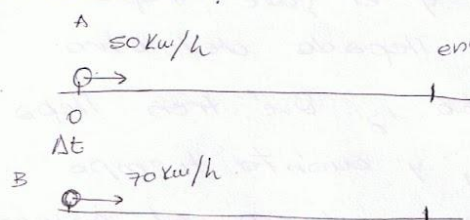 A
50 Km/h
en
0
Δt
B
70 Km/h